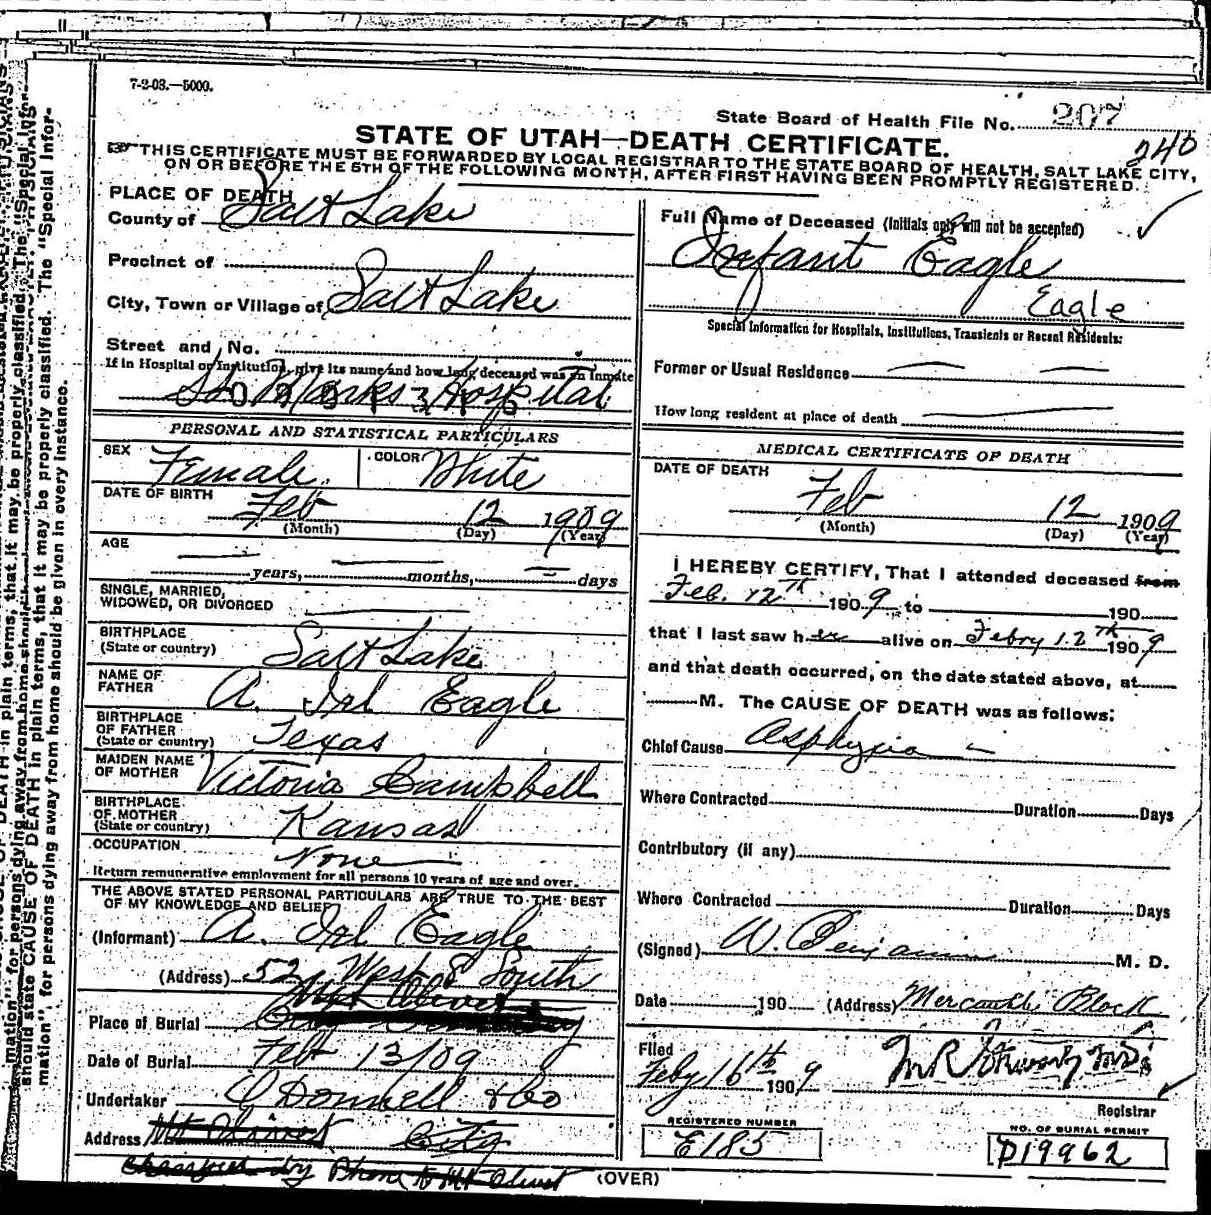 7-2-08.—5000.
State Board of Health File No. 207
STATE OF UTAH—DEATH CERTIFICATE.
240
THIS CERTIFICATE MUST BE FORWARDED BY LOCAL REGISTRAR TO THE STATE BOARD OF HEALTH, SALT LAKE CITY,
ON OR BEFORE THE 5TH OF THE FOLLOWING MONTH, AFTER FIRST HAVING BEEN PROMPTLY REGISTERED.
PLACE OF DEATH
County of Salt Lake
Precinct of
City, Town or Village of Salt Lake
Street and No.
If in Hospital or Institution, give its name and how long deceased was an Inmate
St. Marks Hospital
PERSONAL AND STATISTICAL PARTICULARS
SEX Female. COLOR White
DATE OF BIRTH Feb 12 1909
(Month) (Day) (Year)
AGE
years, months, days
SINGLE, MARRIED,
WIDOWED, OR DIVORCED
BIRTHPLACE
(State or country) Salt Lake
NAME OF
FATHER A. Irl Eagle
BIRTHPLACE
OF FATHER
(State or country) Texas
MAIDEN NAME
OF MOTHER Victoria Campbell
BIRTHPLACE
OF MOTHER
(State or country) Kansas
OCCUPATION None
Return remunerative employment for all persons 10 years of age and over.
THE ABOVE STATED PERSONAL PARTICULARS ARE TRUE TO THE BEST
OF MY KNOWLEDGE AND BELIEF
(Informant) A. Irl Eagle
(Address) 52 West 8 South
Mt Olivet
Place of Burial
Date of Burial Feb 13/09
Undertaker O Donnell & Co
Address Mt Olivet City
by Phone to Mt Olivet
(OVER)
Full Name of Deceased (Initials only will not be accepted)
Infant Eagle
Eagle
Special Information for Hospitals, Institutions, Transients or Recent Residents:
Former or Usual Residence
How long resident at place of death
MEDICAL CERTIFICATE OF DEATH
DATE OF DEATH
Feb 12 1909
(Month) (Day) (Year)
I HEREBY CERTIFY, That I attended deceased from
Feb. 12th 1909, to 190
that I last saw her alive on Febry 12th 1909
and that death occurred, on the date stated above, at
M. The CAUSE OF DEATH was as follows:
Chief Cause Asphyxia
Where Contracted Duration Days
Contributory (if any)
Where Contracted Duration Days
(Signed) W. Benjamin M. D.
Date 190 (Address) Mercantile Block
Filed
Feby 16th 1909
Registrar
REGISTERED NUMBER
E185
NO. OF BURIAL PERMIT
D19962
should state CAUSE OF DEATH in plain terms, that it may be properly classified. The "Special Infor-
mation" for persons dying away from home should be given in every instance.